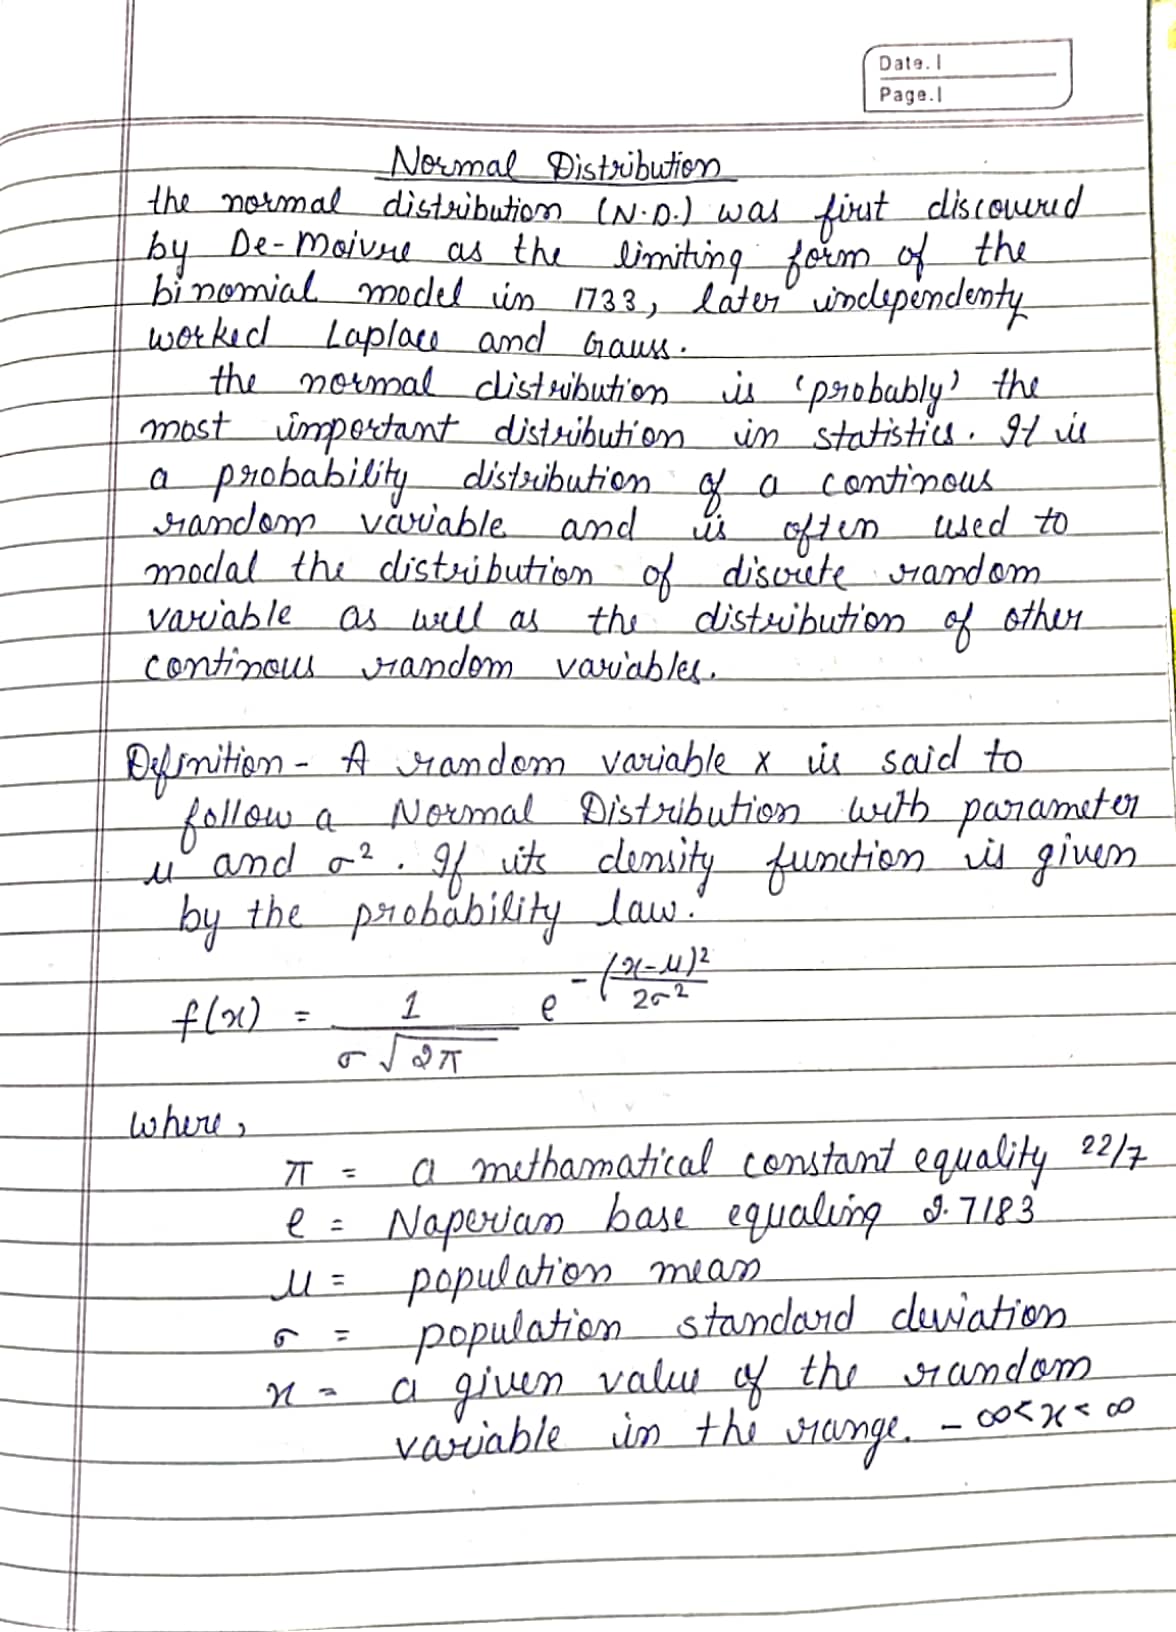 Date.
Page.
Normal Distribution
the normal distribution (N.D.) was first discovered
by De-Moivre as the limiting form of the
binomial model in 1733, later independenty
worked Laplace and Gauss.
the normal distribution is 'probably' the
most important distribution in statistics. It is
a probability distribution of a continous
random variable and is often used to
modal the distribution of discrete random
variable as well as the distribution of other
continous random variables.
Definition - A random variable x is said to
follow a Normal Distribution with parameter
μ and σ². If its density function is given
by the probability law.
f(x) = 1/(σ√2π) e^-(x-μ)²/2σ²
where,
π = a methamatical constant equality 22/7
e = Naperian base equaling 2.7183
μ = population mean
σ = population standard deviation
x = a given value of the random
variable in the range. -∞<x<∞